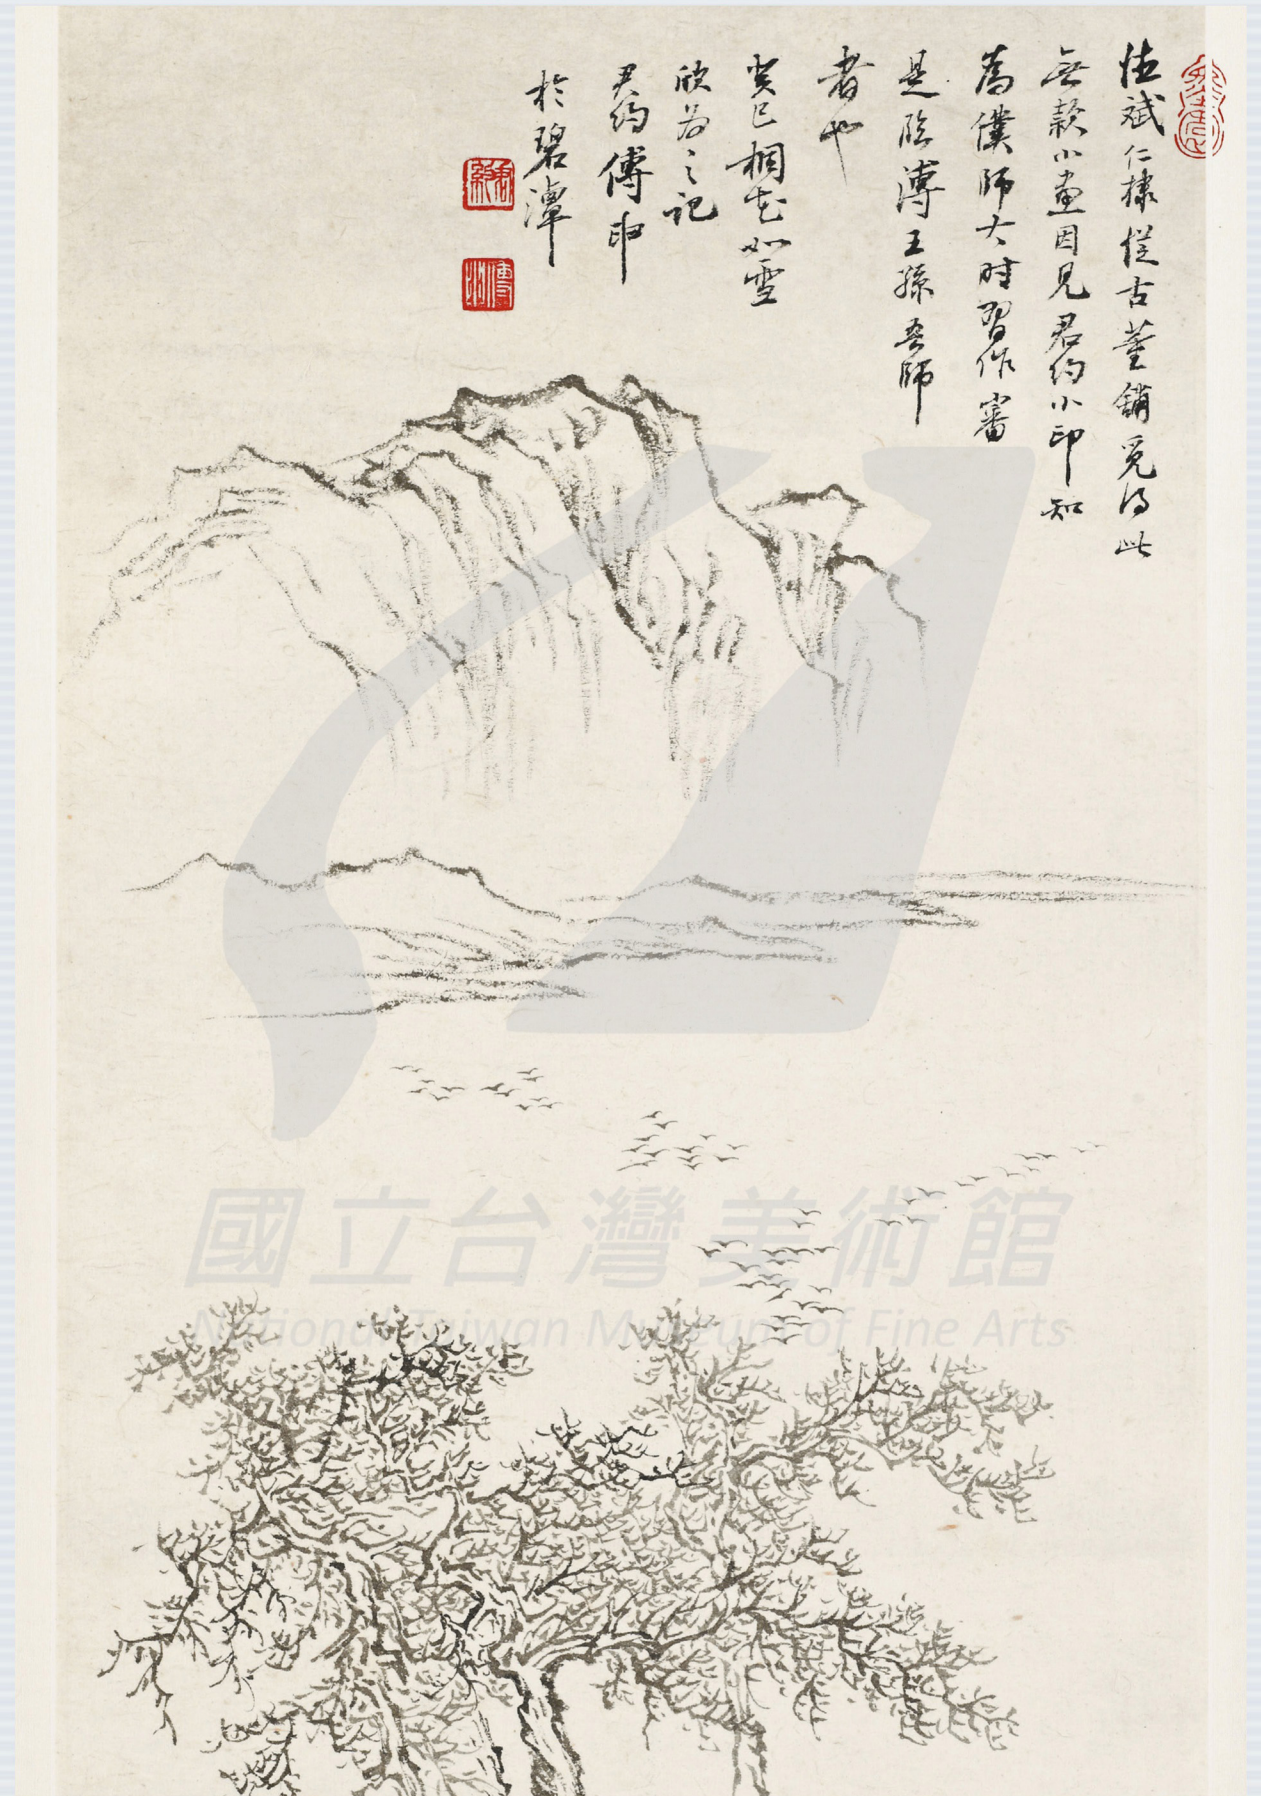 德斌仁棣從古董鋪覓得此
無款小畫因見君約小印知
為僕師大時習作審
是臨溥王孫吾師
者也
癸巳桐花如雪
欣為之記
君約傅申
於碧潭
國立台灣美術館
National Taiwan Museum of Fine Arts